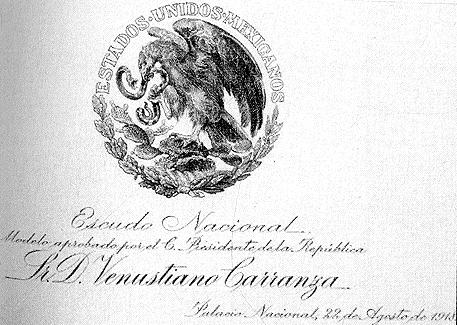 ESTADOS·UNIDOS·MEXICANOS
Escudo Nacional
Modelo aprobado por el C. Presidente de la República
Sr. D. Venustiano Carranza
Palacio Nacional, 22, de Agosto de 1918.